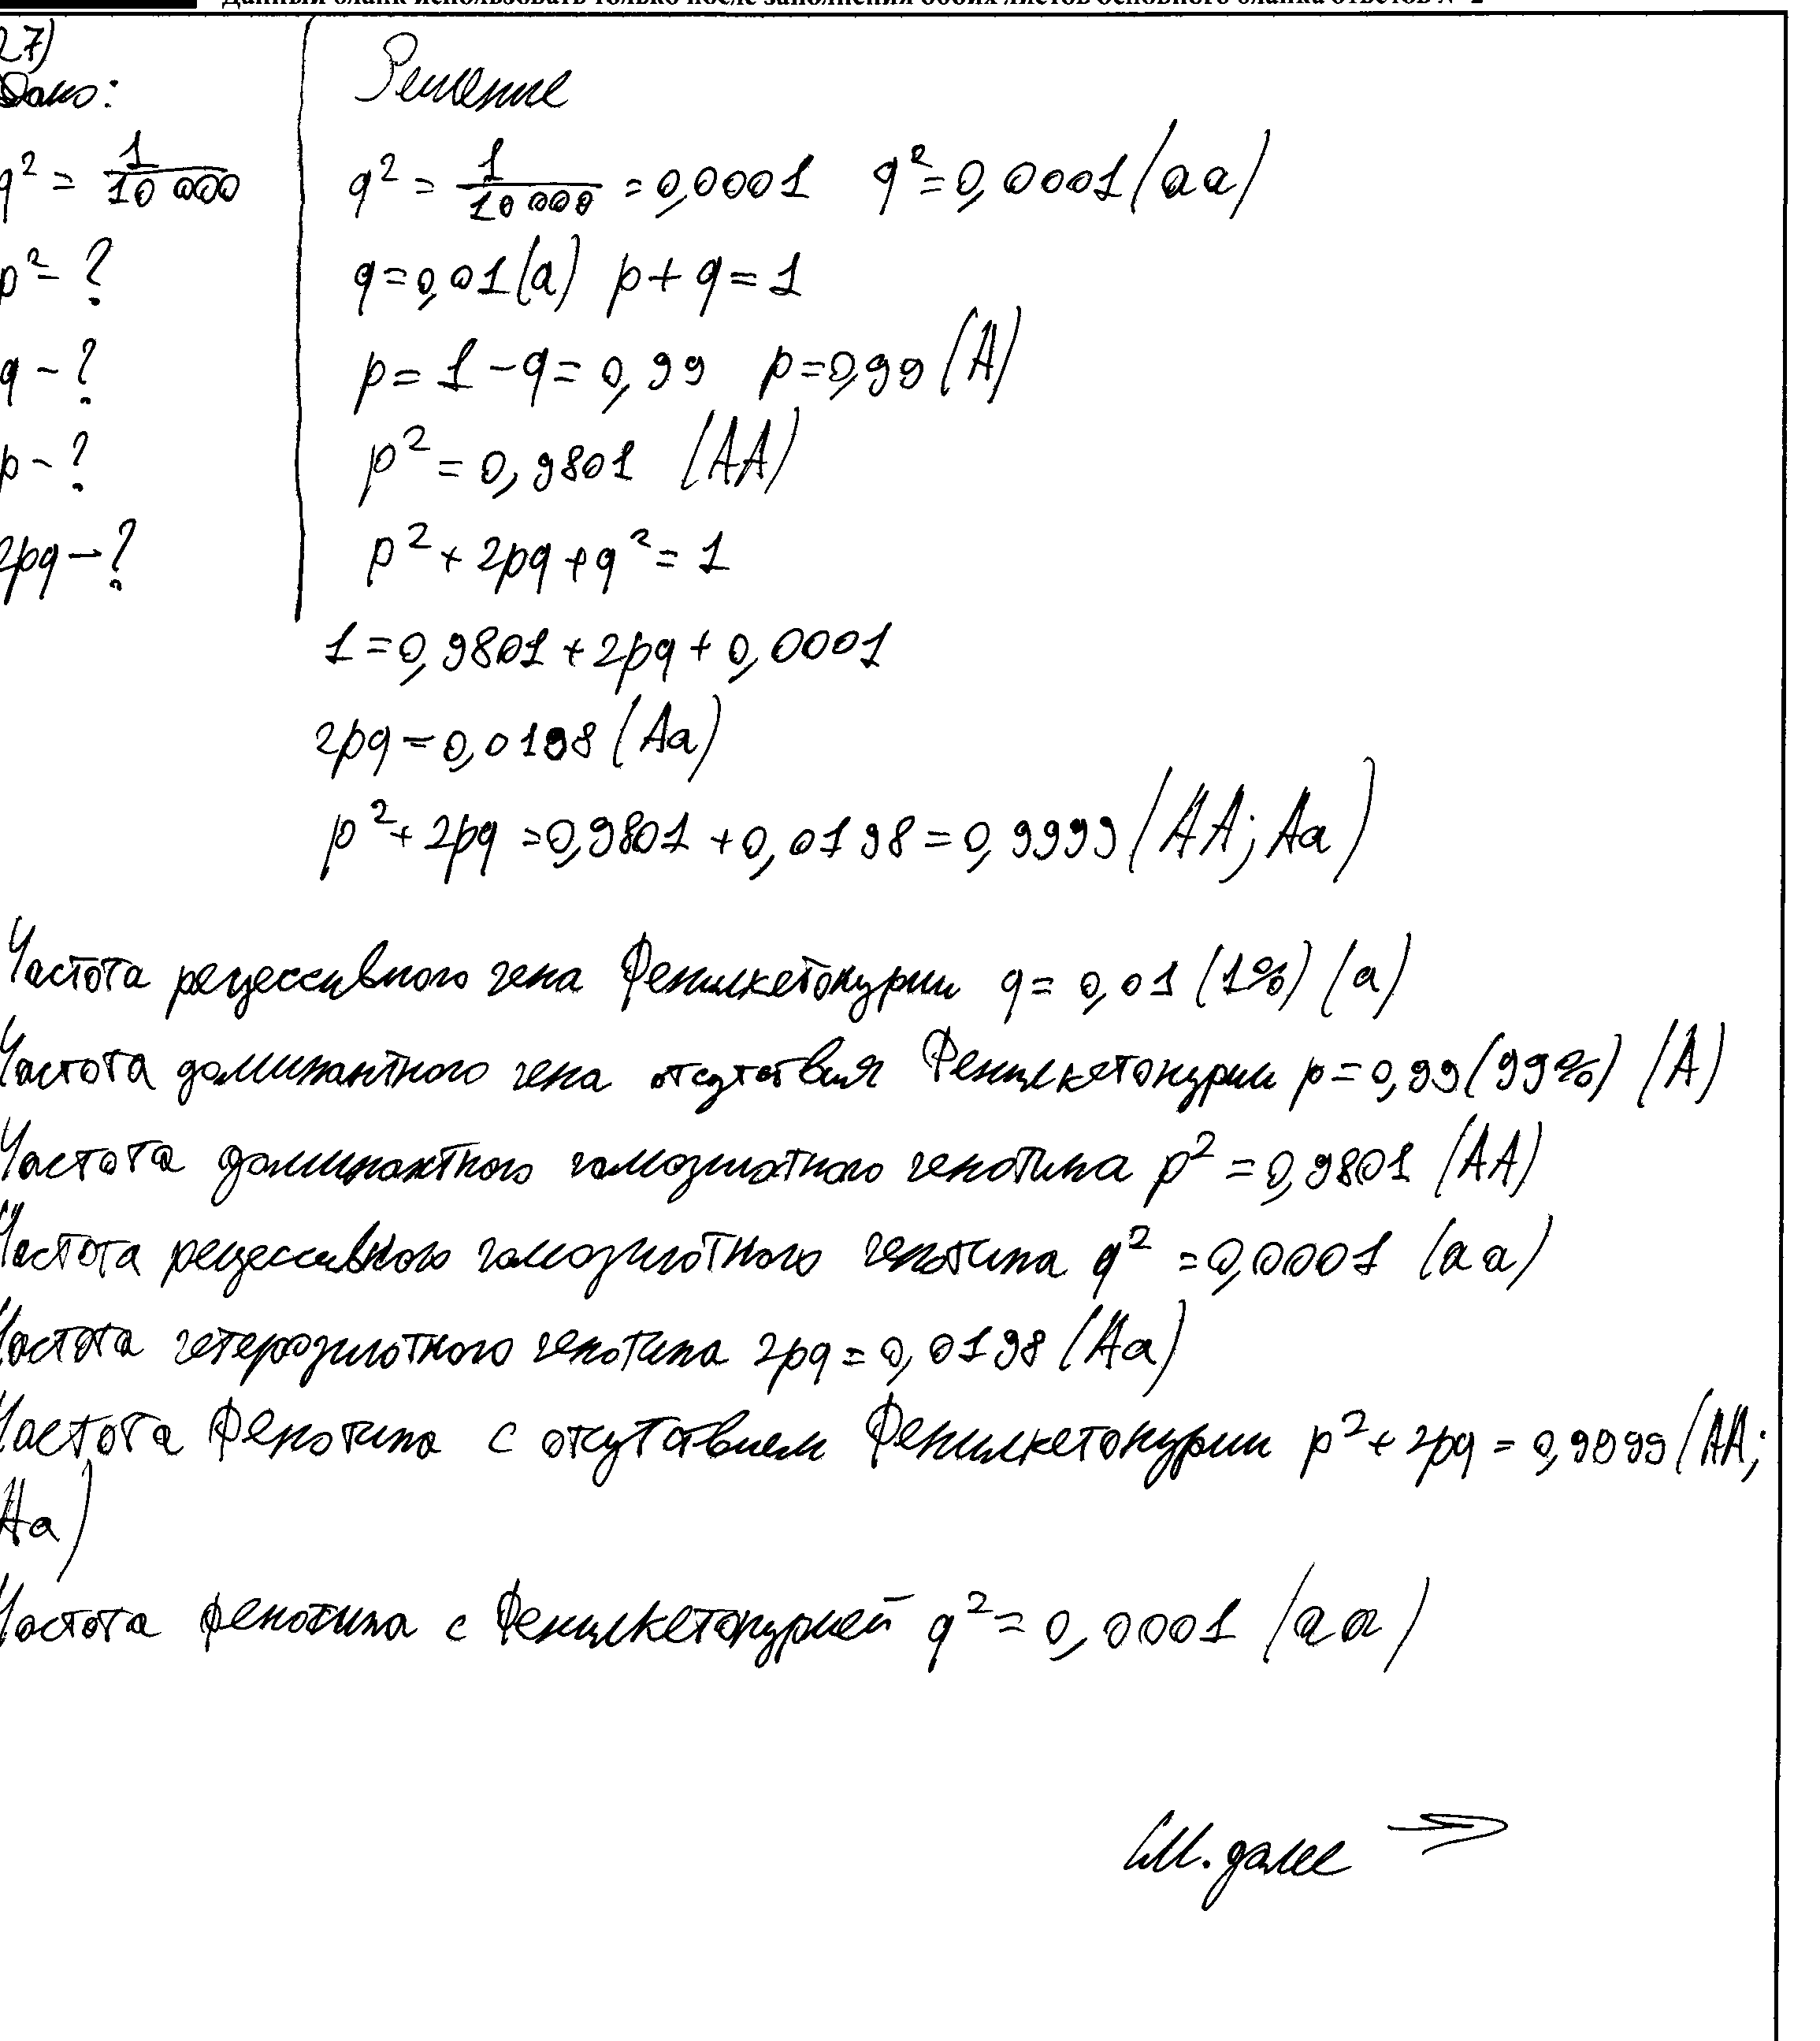 Данный бланк использовать только после заполнения обоих листов основного бланка ответов № 2
27)
Дано:
q² = 1/10 000
p² - ?
q - ?
p - ?
2pq - ?
Решение
q² = 1/10 000 = 0,0001 q² = 0,0001 (aa)
q = 0,01 (a) p + q = 1
p = 1 - q = 0,99 p = 0,99 (A)
p² = 0,9801 (AA)
p² + 2pq + q² = 1
1 = 0,9801 + 2pq + 0,0001
2pq = 0,0198 (Aa)
p² + 2pq = 0,9801 + 0,0198 = 0,9999 (AA; Aa)
Частота рецессивного гена Фенилкетонурии q = 0,01 (1%) (a)
Частота доминантного гена отсутствия Фенилкетонурии p = 0,99 (99%) (A)
Частота доминантного гомозиготного генотипа p² = 0,9801 (AA)
Частота рецессивного гомозиготного генотипа q² = 0,0001 (aa)
Частота гетерозиготного генотипа 2pq = 0,0198 (Aa)
Частота Фенотипа с отсутствием Фенилкетонурии p² + 2pq = 0,9999 (AA;
Aa)
Частота фенотипа с Фенилкетонурией q² = 0,0001 (aa)
См. далее →